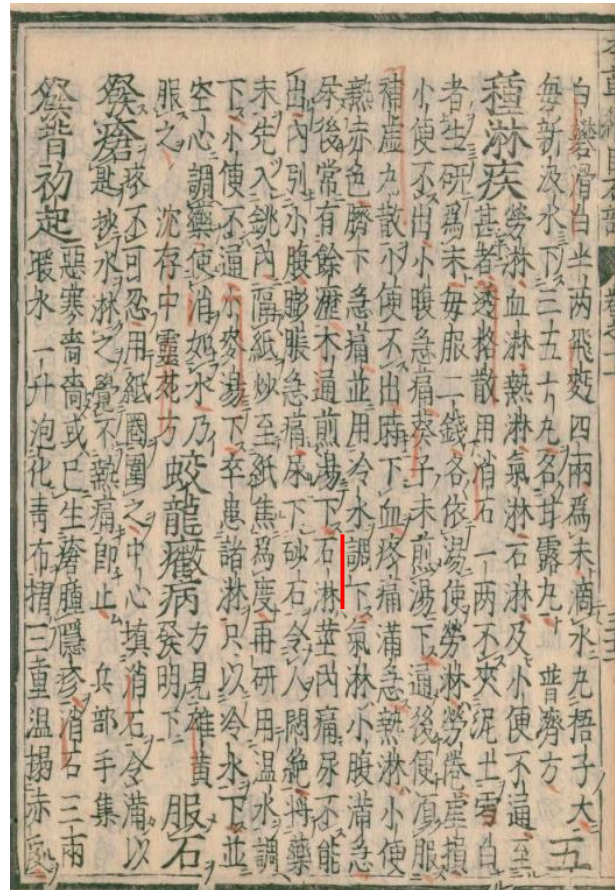 白礬滑白半两飛麪四兩爲末滴水丸梧子大
每新汲水下三五十丸名甘露丸 普濟方 五
種淋疾 勞淋血淋熱淋氣淋石淋及小便不通至
甚者透格散用消石一两不夾泥土雪白
者生研爲末每服二錢各依湯使勞淋勞倦虛損
小便不出小腹急痛葵子末煎湯下通後便須服
補虛丸散小便不出時下血疼痛滿急熱淋小便
熱赤色臍下急痛並用冷水調下氣淋小腹滿急
尿後常有餘瀝木通煎湯下石淋莖內痛尿不能
出內引小腹膨脹急痛尿下砂石令人悶絕將藥
末先入銚內隔紙炒至紙焦爲度再研用溫水調
下小便不通小麥湯下卒患諸淋只以冷水下並
空心調藥使消如水乃
服之 沈存中靈苑方 蛟龍癥病 方見雄黃發明下 服石
發瘡 疼不可忍用紙圈圍之中心填消石令滿以
匙抄水淋之覺不熱痛即止 兵部手集
發背初起 惡寒嗇嗇或已生瘡腫癮疹消石三兩
暖水一升泡化青布摺三重溫搨赤處